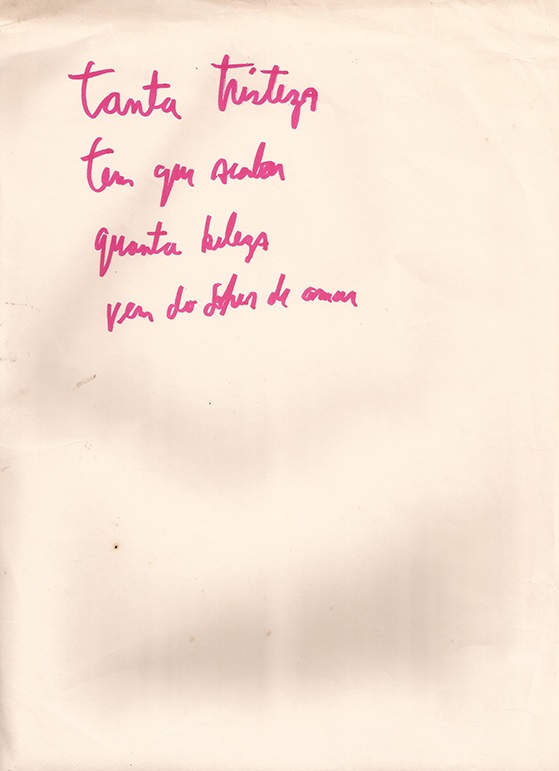 tanta tristeza
tem que acabar
quanta beleza
vem do sofrer de amar